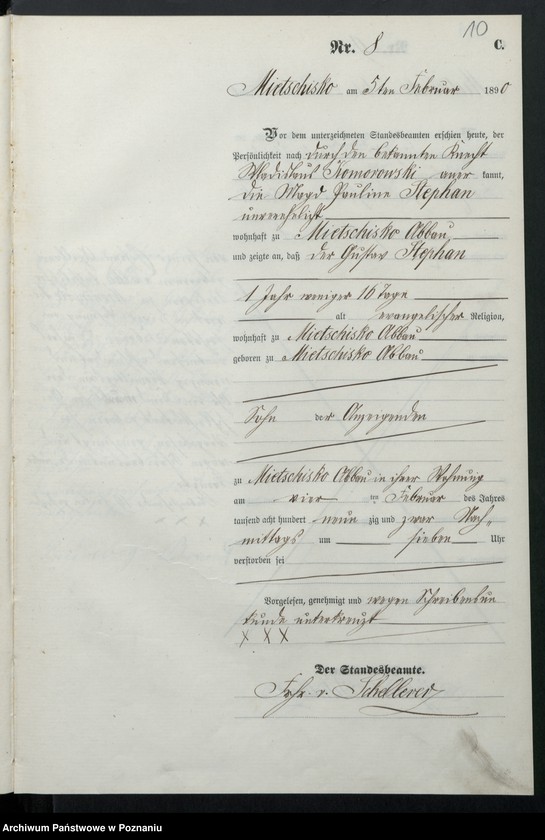 10
Nr. 8 C.
Mietschisko am 5ten Februar 1890
Vor dem unterzeichneten Standesbeamten erschien heute, der
Persönlichkeit nach durch den bekannten Knecht
Wladislaus Komorowski aner kannt,
die Magd Pauline Stephan
unverehelicht
wohnhaft zu Mietschisko Abbau
und zeigte an, daß der Gustav Stephan
1 Jahr weniger 16 Tage
alt evangelischer Religion,
wohnhaft zu Mietschisko Abbau
geboren zu Mietschisko Abbau
Sohn der Anzeigenden
zu Mietschisko Abbau in ihrer Wohnung
am vier ten Februar des Jahres
tausend acht hundert neun zig und zwar Nach-
mittags um sieben Uhr
verstorben sei
Vorgelesen, genehmigt und wegen Schreibensun
kunde unterkreuzt
X X X
Der Standesbeamte.
Frhr. v.
Archiwum Państwowe w Poznaniu